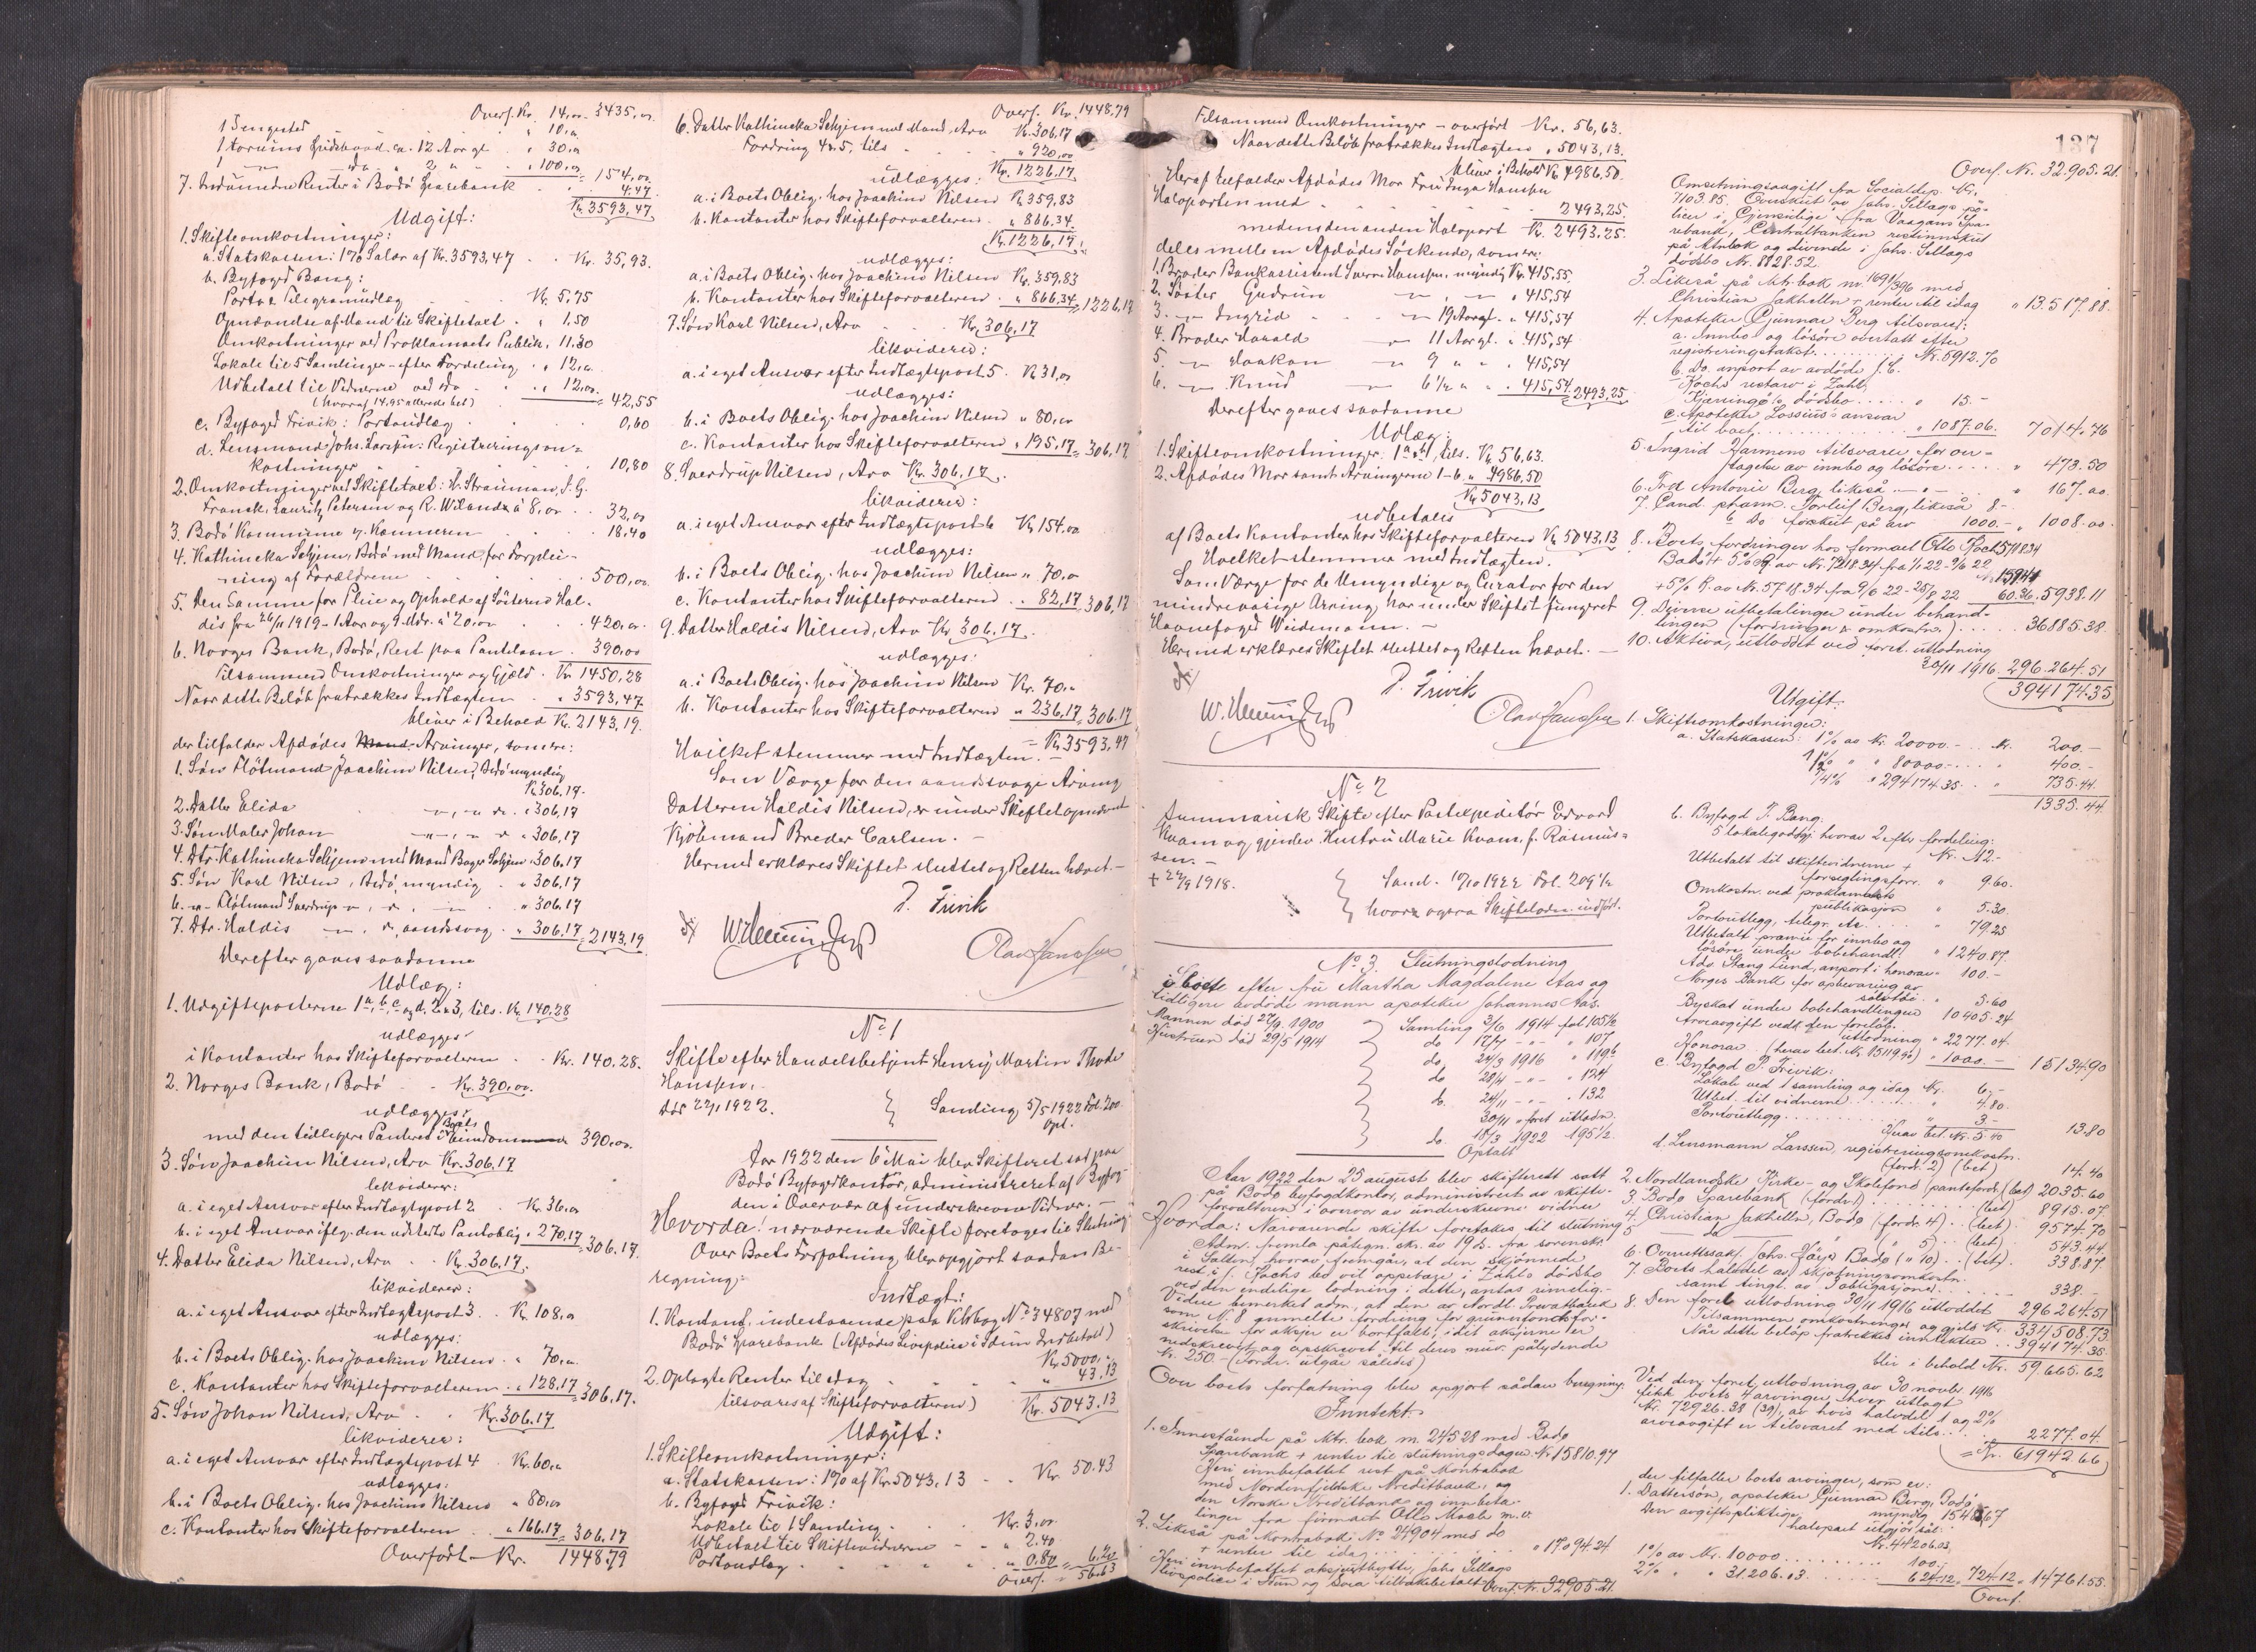 Overf. Kr. 14,oo 3435,oo
1 Sengested " 10,oo
1 tarvuns 12 Aar gl. " 30,oo
1 — do " 2 " " " 100,oo 154,oo
7. Indvundne Renter i Bodø Sparebank 4.47
Kr. 3593,47
Udgift:
1. Skifteomkostninger:
a. Statskassen: 1% Salær af Kr. 3593,47 Kr. 35,93.
b. Byfoged Bang:
Porto & Telegramudlæg Kr. 5,75
Opnævnelse af Mænd til Skiftetaxt " 1,50
Omkostninger ved Proklamaets Publik. " 11.30
Lokale til 5 Samlinger - efter Fordeling " 12,oo
Udbetalt til Vidnerne ved do " 12,oo 42,55
(hvoraf 14,95 allerede bet)
c. Byfoged Trivik: Portoudlæg 0,60
d. Lensmand Johs. Larssen: Registreringsom=
kostninger 10,80
2. Omkostninger ved Skiftetaxt: H. Straumann, J. G.
Franck, Lauritz Petersen og R. Wiland à 8,oo 32,oo
3. Bodø Kommune v. Kæmneren 18.40
4. Kathincka Schjem, Bodø med Mand, for Forplei-
ning af Forældrene 500,oo
5. Den Samme for Pleie og Ophold af Søsteren Hal-
dis fra 26/11 1919 - 1 Aar og 9 Mdr. à 20,oo 420,oo
6. Norges Bank, Bodø, Rest paa Pantelaan 390,oo
Tilsammen Omkostninger og Gjæld Kr. 1450,28
Naar dette Beløb fratrækkes Indtægten " 3593,47.
bliver i Behold Kr. 2143,19.
der tilfalder Afdødes Mand Arvinger, som ere:
1. Søn Fløtmand Joachim Nilsen, Bodø myndig
Kr. 306,17.
2. Datter Elida " 306,17
3. Søn Maler Johan " 306,17
4. Dtr. Kathincka Schjem med Mand Bager Schjem " 306.17
5. Søn Karl Nilsen, Bodø, myndig " 306.17
6. — Fløtmand Sverdrup " 306.17
7. Dtr. Haldis aandssvag " 306.17 = 2143.19
Derefter gaves saadanne
Udlæg:
1. Udgiftsposterne 1 a, b, c og d, 2 & 3, tils. Kr. 140.28
udlægges
i Kontanter hos Skifteforvalteren Kr. 140.28.
2. Norges Bank, Bodø Kr. 390,oo.
udlægges:
med den tidligere Panteret i Boets Eiendommene 390,oo.
3. Søn Joachim Nilsen, Arv Kr. 306,17
likviderer:
a. i eget Ansvar efter Indtægtspost 2 Kr. 36,oo
b. i eget Ansvar iflg. den udstedte Pantoblig. " 270,17 = 306,17.
4. Datter Elida Nilsen, Arv Kr. 306,17.
likviderer:
a. i eget Ansvar efter Indtægtspost 3 Kr. 108,oo
udlægges:
b. i Boets Oblig. hos Joachim Nilsen " 70,oo
c. Kontanter hos Skifteforvalteren " 128.17 = 306,17.
5. Søn Johan Nilsen, Arv Kr. 306.17
likviderer:
a. i eget Ansvar efter Indtægtspost 4 Kr. 60,oo
udlægges:
b. i Boets Oblig. hos Joachim Nilsen " 80,oo
c. Kontanter hos Skifteforvalteren " 166.17 = 306,17
Overført Kr. 1448.79
Overf. Kr. 1448.79
6. Datter Kathincka Schjem med Mand, Arv Kr. 306.17
Fordring 4 & 5, tils " 920,oo
Kr. 1226,17
udlægges:
a. i Boets Oblig. hos Joachim Nilsen Kr. 359,83
b. Kontanter hos Skifteforvalteren " 866,34.
Kr. 1226,17.
udlægges:
a. i Boets Oblig. hos Joachim Nilsen Kr. 359,83
b. Kontanter hos Skifteforvalteren " 866,34 = 1226,17
7. Søn Karl Nilsen, Arv Kr. 306,17
likviderer:
a. i eget Ansvar efter Indtægtspost 5 Kr. 31,oo
udlægges:
b. i Boets Oblig. hos Joachim Nilsen " 80,oo
c. Kontanter hos Skifteforvalteren " 195,17 = 306,17
8. Sverdrup Nilsen, Arv Kr. 306,17.
likviderer:
a. i eget Ansvar efter Indtægtspost 6 Kr. 154,oo
udlægges:
b. i Boets Oblig. hos Joachim Nilsen " 70,oo
c. Kontanter hos Skifteforvalteren " 82,17 = 306,17
9. Datter Haldis Nilsen, Arv Kr. 306,17.
udlægges:
a. i Boets Oblig. hos Joachim Nilsen Kr. 70,oo
b. Kontanter hos Skifteforvalteren " 236,17 = 306.17
Kr. 3593,47
Hvilket stemmer med Indtægten. —
Som Værge for den aandssvage Arving
Datteren Haldis Nilsen, er under Skiftet opnævnt
Kjøbmand Breder Carlsen. —
Hermed erklæres Skiftet sluttet og Retten hævet. —
P. Trivik
Olav Hanssen
No 1
Skifte efter Handelsbetjent Henry Martin Thode
Hanssen, —
død 22/1 1922. Samling 5/5 1922 Fol. 200
Opl.
Aar 1922 den 6 Mai blev Skifteret sat paa
Bodø Byfogedkontor, administreret af Byfog-
den i Overvær af underskrevne Vidner. —
Hvorda: nærværende Skifte foretoges til Slutning
Over Boets Forfatning blev opgjort saadan Be-
regning:
Indtægt:
1. Kontant indestaaende paa Ktrbog No 34807 med
Bodø Sparebank (Afdødes Livspolice i Idun Indbetalt)
Kr. 5000,-
2. Oplagte Renter til idag " 43.13
(tilsvares af Skifteforvalteren) Kr. 5043.13
Udgift:
1. Skifteomkostninger:
a. Statskassen: 1% af Kr. 5043,13 Kr. 50.43
b. Byfoged Trivik:
Lokale til 1 Samling Kr. 3,oo
Udbetalt til Skiftevidnerne " 2.40
Portoudlæg " 0.80 = 6.20
Overf. " 56.63
Tilsammen Omkostninger - overført Kr. 56,63.
Naar dette Beløb fratrækkes Indtægten " 5043,13.
bliver i Behold Kr. 4986,50.
Heraf tilfalder Afdødes Mor Fru Inga Hanssen
Halvparten med 2493,25.
medens den anden Halvpart Kr. 2493.25.
deles mellem Afdødes Søskende, som ere:
1. Broder Bankassistent Sverre Hanssen, myndig Kr. 415,55
2. Søster Gudrun " 415,54
3. — Ingrid 19 Aar gl. " 415,54
4. Broder Harald 11 Aar gl. " 415,54
5. — Haakon 9 " " 415,54
6. — Knud 6 1/2 " " 415,54 2493,25
Derefter gaves saadanne
Udlæg:
1. Skifteomkostninger 1 a & b, tils. Kr. 56,63.
2. Afdødes Mor samt Arvingerne 1-6 " 4986,50
Kr. 5043,13
udbetales
af Boets Kontanter hos Skifteforvalteren Kr. 5043,13
Hvilket stemmer med Indtægten.
Som Værge for de Umyndige og Curator for den
mindreaarige Arving, har under Skiftet fungeret
Havnefoged Weidemann. —
Hermed erklæres Skiftet sluttet og Retten hævet. —
P. Trivik
Olav Hanssen
No 2
Summarisk Skifte efter Postexpeditør Edvard
Kvam og gjenlev. Hustru Marie Kvam, f. Rasmus=
sen. —
+ 22/9 1918. Saml. 10/10 1922 Fol. 209 1/2
hvor ogsaa Skiftelodn. indført.
No 3 Slutningslodning
i boet efter fru Martha Magdalene Aas og
tidligere avdøde mann apoteker Johannes Aas.
Mannen død 27/9 1900 Samling 3/6 1914 fol. 105 1/2
Hustruen død 29/5 1914 do 17/7 — " — " 107
do 24/3 1916 " 119 b
do 28/4 — " — " 124
do. 24/11 — " — " 132
30/11 " foret. utlodn.
do. 18/3 1922 195 1/2
Optatt
Aar 1922 den 25 august blev skifterett satt
på Bodø byfogdkontor, administrert av skifte-
forvalteren i overvær av underskrevne vidner
Hvorda: Nærværende skifte foretokes til slutning
Adm. fremla påtegn. skr. av 19 ds. fra sorenskr.
i Salten, hvorav fremgår, at den skjønnede
rest i f. Kochs bo vil oppebære i Zahls dødsbo
ved den endelige lodning i dette, antas rimelig.-
Videre bemerket adm., at den av Nordl. Privatbank
som N. 8 anmeldte fordring for grunnfondsfor-
skrivelse for aksjer er bortfalt, idet aksjerne er
nedskrevet og opskrevet til deres nuv. pålydende
Kr. 250. - (Fordr. utgår således)
Over boets forfatning blev opgjort sådan beregning:
Inntekt.
1. Innestående på ktr. bok nr. 24528 med Bodø
Sparebank + renter til slutningsdagen Kr. 15810.97
Heri innbefattet rest på kontrabok
med Nordenfjeldske Kreditbank, og
den Norske Kreditbank og innbeta-
linger fra firmaet Otto Koch m.v.
2. Likeså på kontrabok No 24904 med do
+ renter til idag " 17094.24
Heri innbefattet aksjeutbytte, Johs Sellags
livspolicer i Idun og Gora tilbakebetalt Overf. Kr. 32905.21.
137
Overf. Kr. 32.905.21.
Omsetningsavgift fra Socialdep. Kr.
7103.85. Overskut av Johs. Sellags po-
licer i Gjensidige fra Vaagans Spa-
rebank, Centralbanken restinnskut
på ktrbok og dividende i Johs. Sellags
dødsbo Kr. 8828.52.
3. Likeså på ktr. bok nr. 1691/396 med
Christian Jakhelln + renter til idag " 13.517.88.
4. Apoteker Gunnar Berg tilsvarer:
a. Innbo og løsøre overtatt efter
registreringstakst Kr. 5912.70
b. Do. anpart av avdøde f. b.
Kochs restarv i Zahl,
Kjærringø's dødsbo " 15.-
c. Apoteker Lossius's ansvar
til boet " 1087.06. 7014.76
5. Ingrid Harmens tilsvarer for ov-
ertagelse av innbo og løsøre " 473.50
6. Frk Antonie Berg likeså " 167.oo.
7. Cand. pharm. Torleif Berg, likeså 8.-
b Do forskut på arv 1000.- " 1008.oo.
8. Boets fordringer hos firmaet Otto Koch 5718.34
+ 5% R. av Kr. 5718.34 fra 9/6 22 - 25/8 22 60.36. 5938.11
9. Diverse utbetalinger under behand-
lingen (fordringer & omkostn.) 36885.38.
10. Aktiva, utloddet ved foret. utlodning
30/11 1916. 296.264.51
394174.35
Utgift:
1. Skifteomkostninger:
a. Statskassen: 1% av Kr. 20000.- Kr. 200.-
1/2% " " 80000.- " 400.-
1/4% " 294174.35. " 735.44.
1335.44
b. Byfogd J. Bang:
5 lokalegodtgj. hvorav 2 efter fordeling:
Kr. 12.-
Utbetalt til skiftevidnerne +
forseglingsforr. " 9.60.
Omkostn. ved proklamaets
publikasjon " 5.30.
Portoutlegg, telegr. etc. " 79.25
Utbetalt præmie for innbo og
løsøre under bobehandl. " 1240.87.
Adv. Stang Lund, anpart i honorar " 100.-
Norges Bank for opbevaring av
sølvtøi " 5.60
Byskat under bobehandlingen 10405.24
Arveavgift vedk. den foreløb.
utlodning " 2277.04.
Honorar (herav bet. Kr. 15119.90) " 1000.- 15134.90
c. Byfogd P. Trivik:
Lokale ved 1 samling og idag Kr. 6.-
Utbet. til vidnerne 4.80.
Portoutlegg " 3.- 13.80
Herav bet. Kr. 5.40
d. Lensmann Larssen, registreringsomkostn.
(fordr. 2) (bet) 14.40
2. Nordlandske Kirke- og Skolefond (pantefordr.) (bet) 2035.60
3. Bodø Sparebank (fordr. 1) (bet) 8915.07.
4. Christian Jakhelln, Bodø (fordr. 4) (bet) 9574.70
5 — do — " 5) (bet) 543.44.
6. Overrettssakf. Johs. Høye Bodø (" 10) (bet). 338.87.
7. Boets halvdel av skjøtningsomkostn.
samt tingl. av obligasjoner 338.-
8. Den foret utlodning 30/11 1916 utloddet 296264.51
Tilsammen omkostninger og gjeld Kr. 334508.73
Når dette beløp fratrekkes inntekten 394174.35
blir i behold Kr. 59.665.62
Ved den foret. utlodning av 30 novbr. 1916
fikk boets 4 arvinger hver utlagt
Kr. 72926.38 (39), av hvis halvdel 1 og 2%
arveavgift er tilsvaret med tils. 2277.04.
= Kr. 61942.66
der tilfaller boets arvinger, som er:
1. Dattersøn, apoteker Gunnar Berg, Bodø,
myndig 15485.67
Den avgiftspliktige
halvpart utgjør ial:
Kr. 44206.03,
1% av Kr. 10000 100.-
2% " " 31.206.03. 624.12. 724.12 " 14761.55.
Overf.